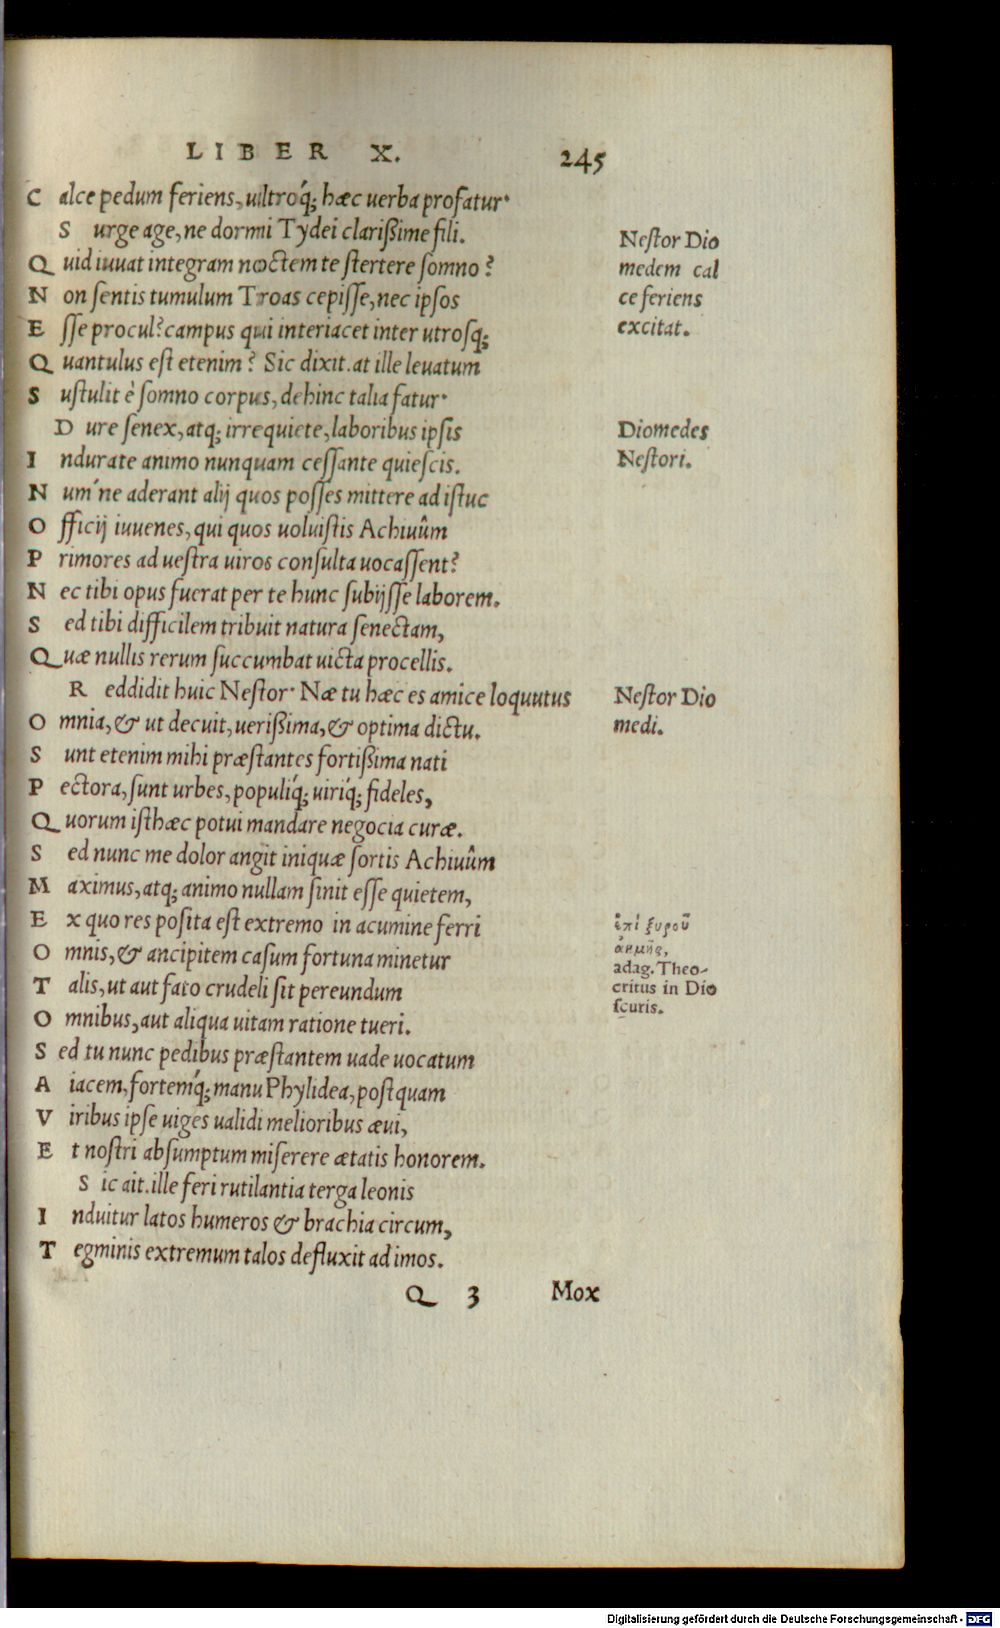 LIBER X. 245
Calce pedum feriens, ultroq́; hæc uerba profatur.
Surge age, ne dormi Tydei clarißime fili.
Quid iuuat integram noctem te stertere somno?
Non sentis tumulum Troas cepisse, nec ipsos
Esse procul? campus qui interiacet inter utrosq;
Quantulus est etenim? Sic dixit. at ille leuatum
Sustulit è somno corpus, dehinc talia fatur.
Dure senex, atq; irrequiete, laboribus ipsis
Indurate animo nunquam cessante quiescis.
Num´ne aderant alij quos posses mittere ad istuc
Officij iuuenes, qui quos uoluistis Achiuûm
Primores ad uestra uiros consulta uocassent?
Nec tibi opus fuerat per te hunc subijsse laborem.
Sed tibi difficilem tribuit natura senectam,
Quæ nullis rerum succumbat uicta procellis.
Reddidit huic Nestor. Næ tu hæc es amice loquutus
Omnia, & ut decuit, uerißima, & optima dictu.
Sunt etenim mihi præstantes fortißima nati
Pectora, sunt urbes, populiq́; uiriq́; fideles,
Quorum isthæc potui mandare negocia curæ.
Sed nunc me dolor angit iniquæ sortis Achiuûm
Maximus, atq; animo nullam sinit esse quietem,
Ex quo res posita est extremo in acumine ferri
Omnis, & ancipitem casum fortuna minetur
Talis, ut aut fato crudeli sit pereundum
Omnibus, aut aliqua uitam ratione tueri.
Sed tu nunc pedibus præstantem uade uocatum
Aiacem, fortemq́; manu Phylidea, postquam
Viribus ipse uiges ualidi melioribus æui,
Et nostri absumptum miserere ætatis honorem.
Sic ait. ille feri rutilantia terga leonis
Induitur latos humeros & brachia circum,
Tegminis extremum talos defluxit ad imos.
Q 3 Mox
Nestor Dio
medem cal
ce feriens
excitat.
Diomedes
Nestori.
Nestor Dio
medi.
ἐπὶ ξυροῦ
ἀκμῆς,
adag. Theo-
critus in Dio
scuris.
Digitalisierung gefördert durch die Deutsche Forschungsgemeinschaft - DFG